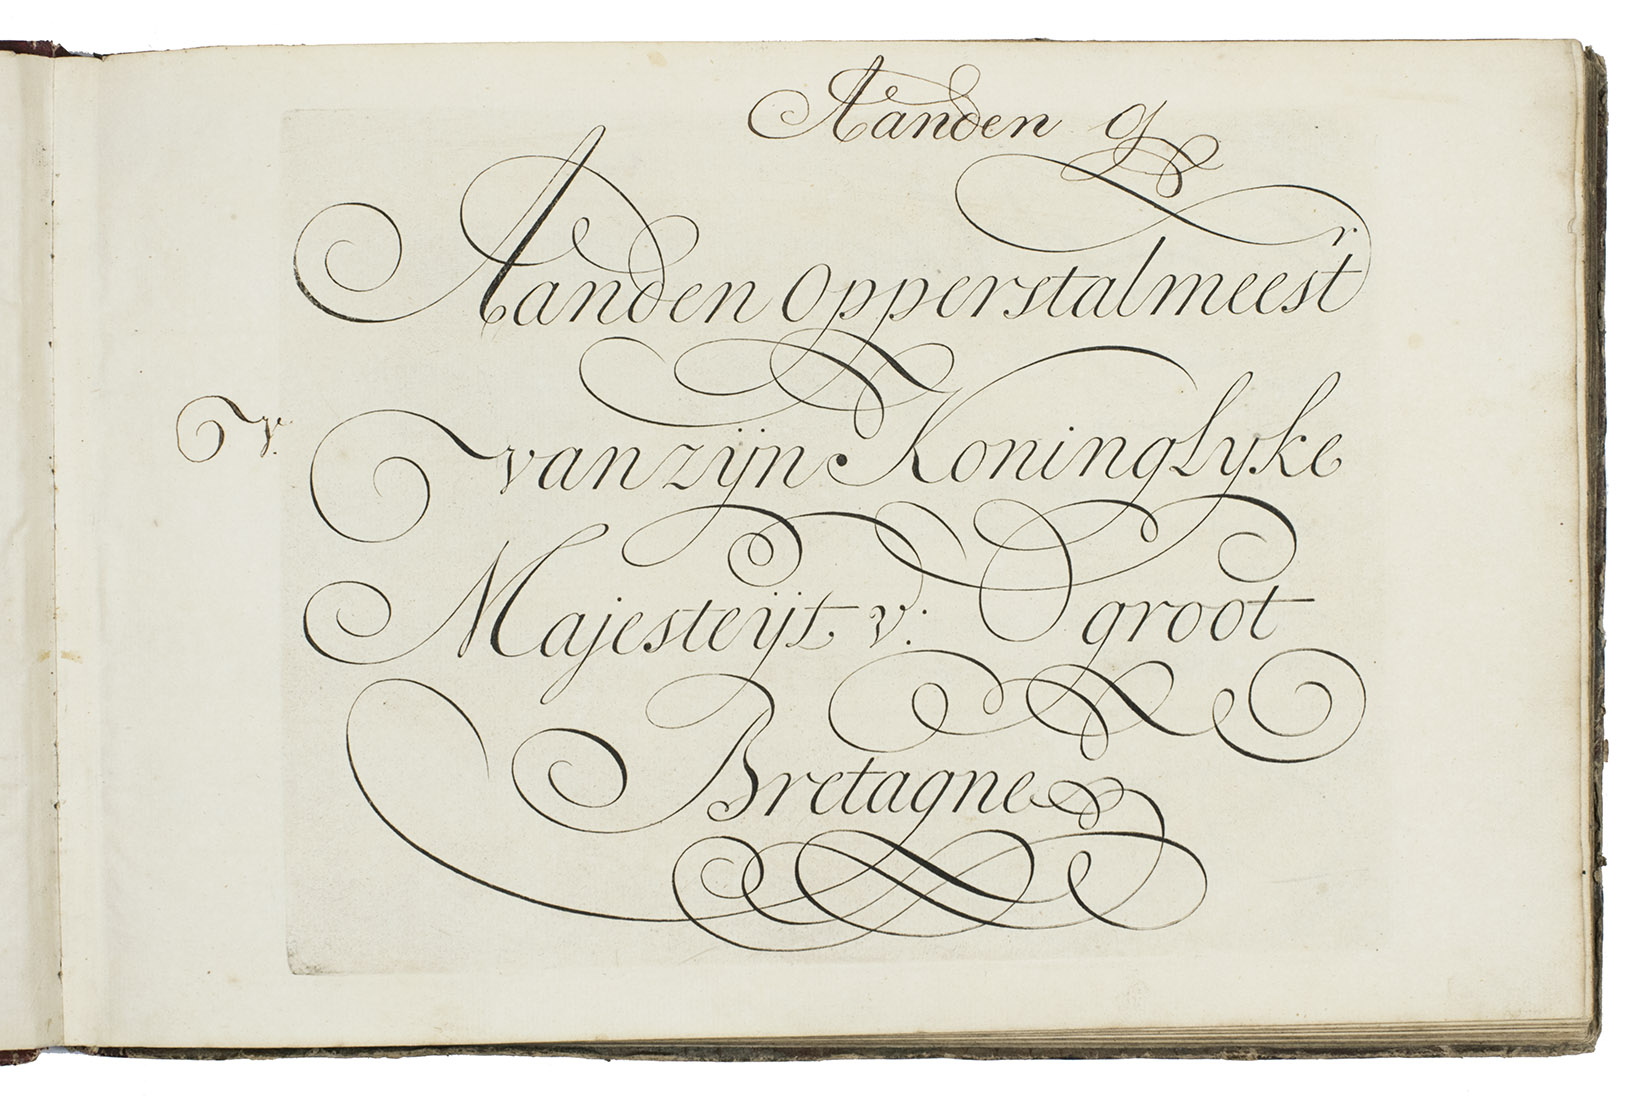 Aanden O
Aanden Opperstalmeestr.
v.
van zijn Koninglyke
Majesteijt v: groot
Bretagne